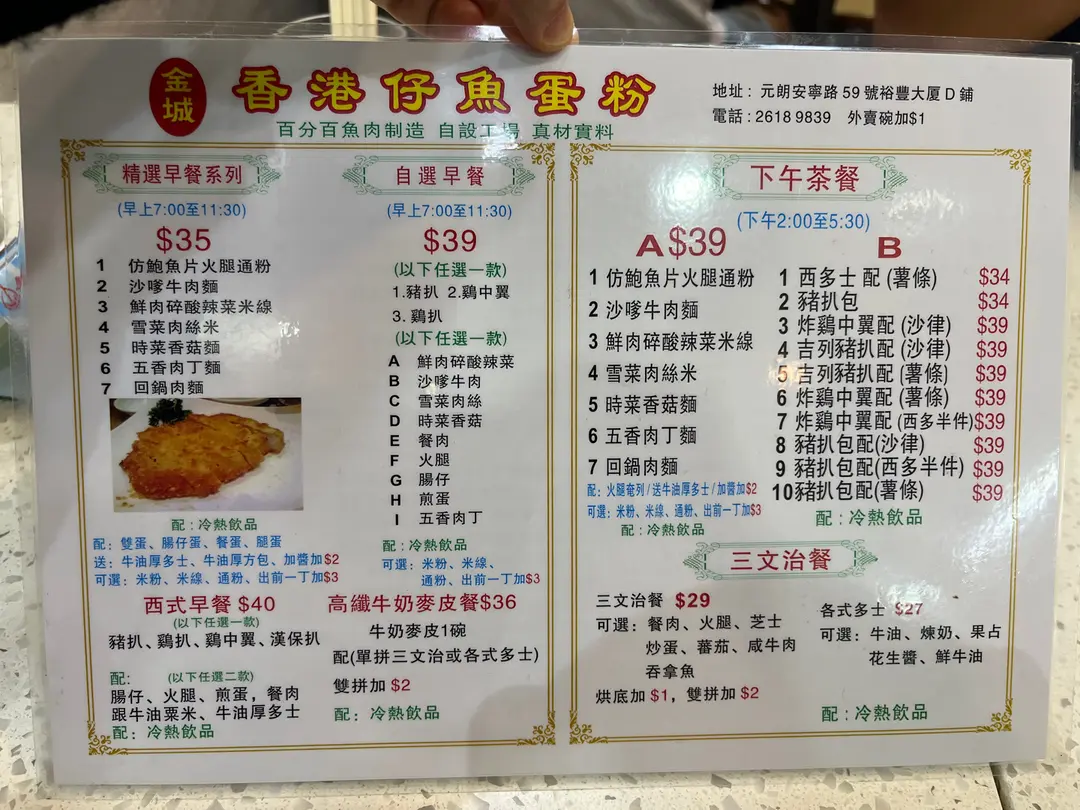 金城
香港仔魚蛋粉
百分百魚肉制造 自設工場 真材實料
地址: 元朗安寧路 59 號裕豐大厦 D 鋪
電話: 2618 9839 外賣碗加$1
精選早餐系列
(早上7:00至11:30)
$35
1 仿鮑魚片火腿通粉
2 沙嗲牛肉麵
3 鮮肉碎酸辣菜米線
4 雪菜肉絲米
5 時菜香菇麵
6 五香肉丁麵
7 回鍋肉麵
配: 冷熱飲品
配: 雙蛋、腸仔蛋、餐蛋、腿蛋
送: 牛油厚多士、牛油厚方包、加醬加$2
可選: 米粉、米線、通粉、出前一丁加$3
自選早餐
(早上7:00至11:30)
$39
(以下任選一款)
1.豬扒 2.鷄中翼
3. 鷄扒
(以下任選一款)
A 鮮肉碎酸辣菜
B 沙嗲牛肉
C 雪菜肉絲
D 時菜香菇
E 餐肉
F 火腿
G 腸仔
H 煎蛋
I 五香肉丁
配: 冷熱飲品
可選: 米粉、米線、
通粉、出前一丁加$3
西式早餐 $40
(以下任選一款)
豬扒、鷄扒、鷄中翼、漢保扒
配: (以下任選二款)
腸仔、火腿、煎蛋, 餐肉
跟牛油粟米、牛油厚多士
配: 冷熱飲品
高纖牛奶麥皮餐$36
牛奶麥皮1碗
配(單拼三文治或各式多士)
雙拼加 $2
配: 冷熱飲品
下午茶餐
(下午2:00至5:30)
A $39
1 仿鮑魚片火腿通粉
2 沙嗲牛肉麵
3 鮮肉碎酸辣菜米線
4 雪菜肉絲米
5 時菜香菇麵
6 五香肉丁麵
7 回鍋肉麵
配: 火腿奄列/送牛油厚多士/加醬加$2
可選: 米粉、米線、通粉、出前一丁加$3
配: 冷熱飲品
B
1 西多士 配 (薯條) $34
2 豬扒包 $34
3 炸鷄中翼配 (沙律) $39
4 吉列豬扒配 (沙律) $39
5 吉列豬扒配 (薯條) $39
6 炸鷄中翼配 (薯條) $39
7 炸鷄中翼配 (西多半件) $39
8 豬扒包配(沙律) $39
9 豬扒包配(西多半件) $39
10 豬扒包配(薯條) $39
配: 冷熱飲品
三文治餐
三文治餐 $29
可選: 餐肉、火腿、芝士
炒蛋、蕃茄、咸牛肉
吞拿魚
烘底加 $1, 雙拼加 $2
各式多士 $27
可選: 牛油、煉奶、果占
花生醬、鮮牛油
配: 冷熱飲品